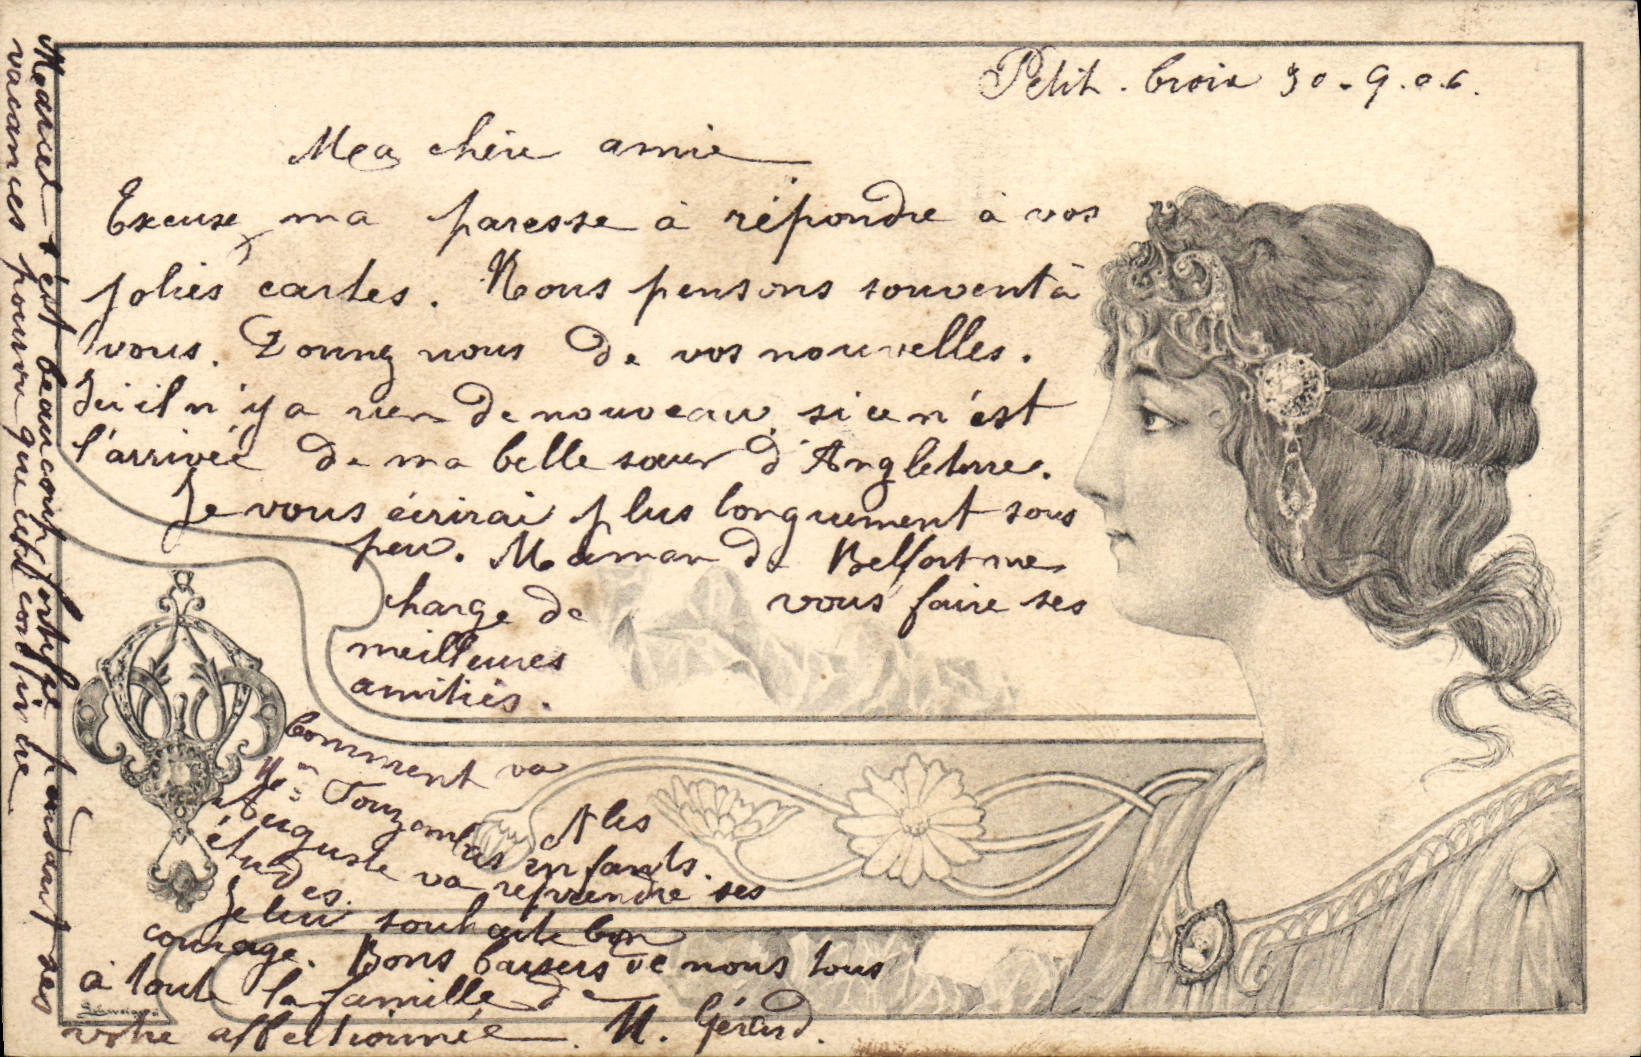 Petit. Croix 30.9.06.
Ma chère amie
Excuse ma paresse à répondre à vos
jolies cartes. Nous pensons souvent à
vous. Donnez nous de vos nouvelles.
Ici il n'y a rien de nouveau si ce n'est
l'arrivée de ma belle sœur d'Angleterre.
Je vous écrirai plus longuement sous
peu. Maman de Belfort me
charge de vous faire ses
meilleures
amitiés.
Comment va
Me Touzom & les
enfants.
Auguste va reprendre ses
études.
Je lui souhaite bon
courage. Bons baisers de nous tous
à toute la famille de
votre affectionnée. M. Gérard.
Marcel s'est beaucoup fortifié pendant ses
vacances pourvu que cela continue